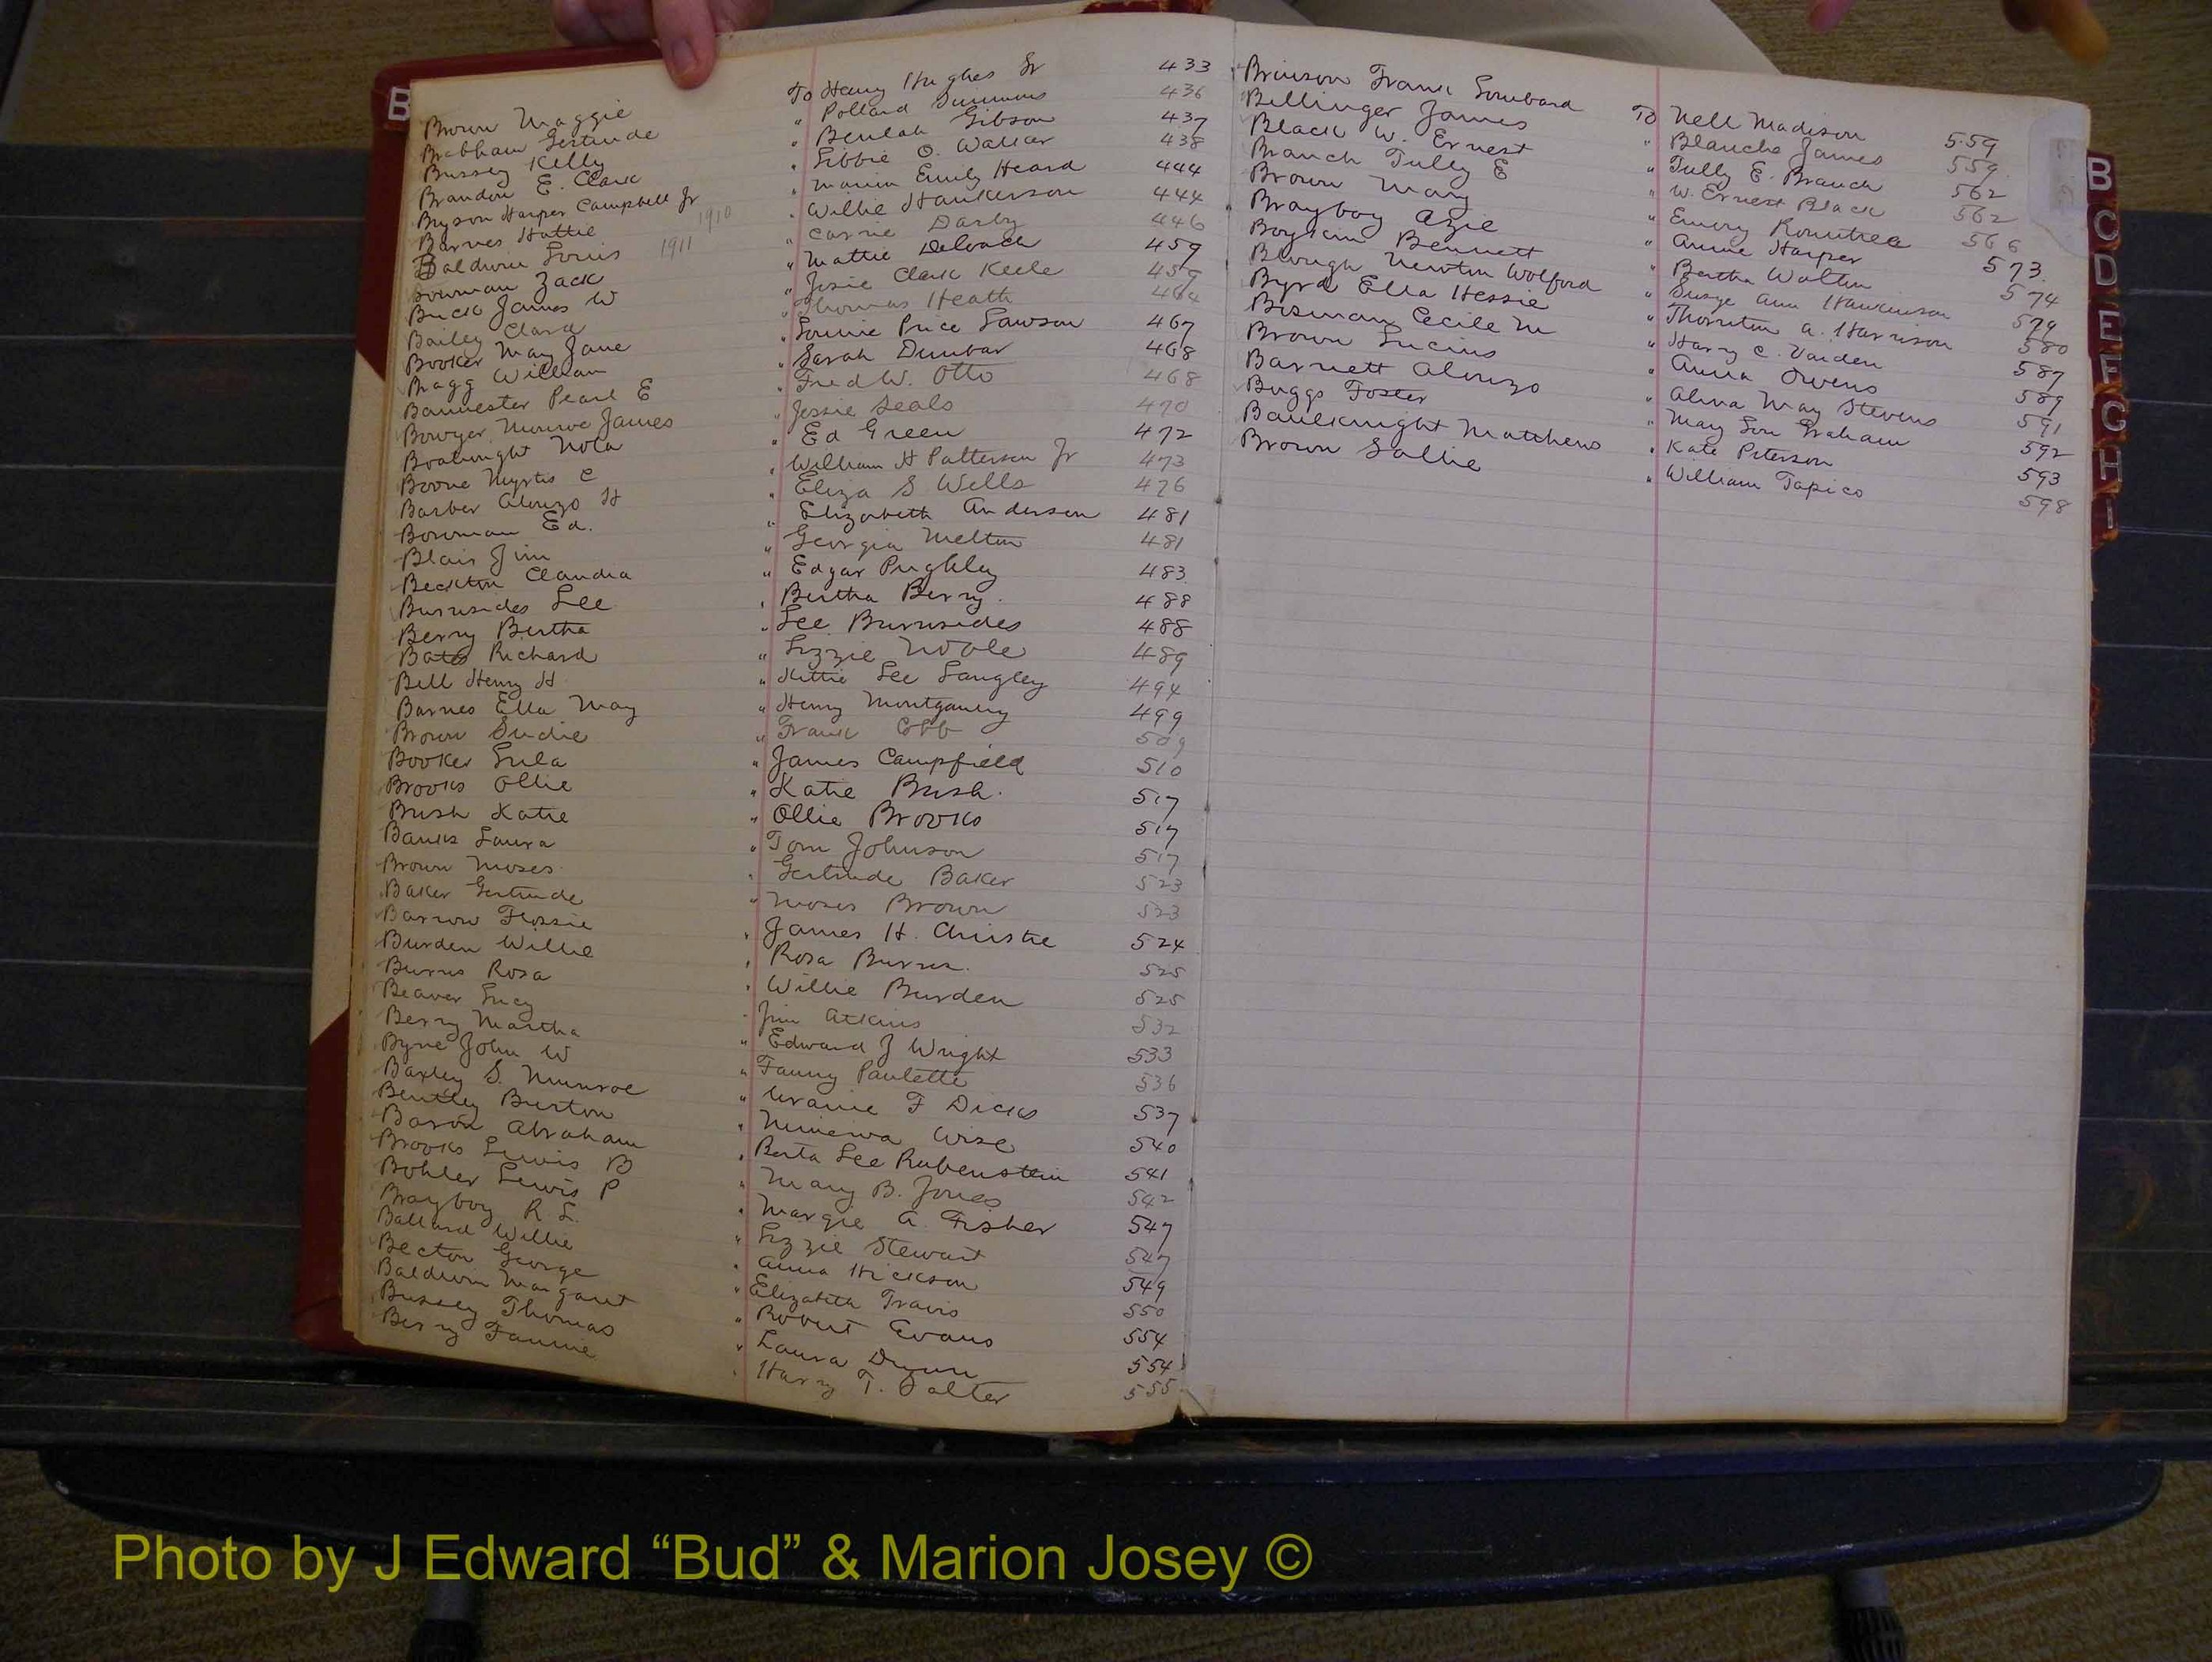 B
Brown Maggie To Henry Hughes Sr 433
Brabham Gertrude " Pollard Simmons 436
Bussey Kelly " Beulah Gibson 437
Brandon E. Clark " Libbie O. Walker 438
Bryson Harper Campbell Jr " Marion Emily Heard 444
Barnes Hattie 1910 " Willie Hankerson 444
Baldwin Louis 1911 " Carrie Darby 446
Bowman Zack " Mattie 459
Buck James W " Josie Clark Keele 459
Bailey Clara " Thomas Heath 464
Booker May Jane " Lonnie Price Lawson 467
Bragg William " Sarah Dunbar 468
Bannester Pearl E " Fred W. Otto 468
Bowyer Monroe James " Jessie Seals 470
Boatwright Nola " Ed Green 472
Boone Myrtis C " William H Patterson Jr 473
Barber Alonzo H " Eliza S Wells 476
Bowman Ed. " Elizabeth Anderson 481
Blair Jim " Georgia Melton 481
Beckton Claudia " Edgar Pughley 483
Burnsides Lee " Bertha Berry 488
Berry Bertha " Lee Burnsides 488
Bates Richard " Lizzie 489
Bell Henry H " Kittie Lee Langley 494
Barnes Ella May " Henry Montgomery 499
Brown Sudie " Frank Cobb 509
Booker Lula " James Campfield 510
Brooks Ollie " Katie Bush. 517
Bush Katie " Ollie Brooks 517
Banks Laura " Tom Johnson 517
Brown Moses " Gertrude Baker 523
Baker Gertrude " Moses Brown 523
Barrow Flossie " James H. Christie 524
Burden Willie " Rosa Burns. 525
Burns Rosa " Willie Burden 525
Beaver Lucy " Jim Atkins 532
Berry Martha " Edward J Wright 533
Byne John W " Fanny Paulette 536
Baxley S. Munroe " F Dicks 537
Bentley Burton " Minerva Wise 540
Baron Abraham " Berta Lee Rubenstein 541
Brooks Lewis B " Mary B. Jones 542
Bohler Lewis P " Margie A. Fisher 547
Brayboy R L. " Lizzie Stewart 547
Ballard Willie " Anna Hickson 549
Becton George " Elizabeth Travis 550
Baldwin Margaret " Robert Evans 554
Bussey Thomas " Laura Dunn 554
Berry Fannie " Harry T. Salter 555
Brinson Frank Lombard To Nell Madison 559
Bellinger James " Blanche James 559
Black W. Ernest " Tully E. Branch 562
Branch Tully E " W. Ernest Black 562
Brown May " Emory Rountree 566
Brayboy Azie " Annie Harper 573
Boykin Bennett " Bertha Walton 574
Blough Newton Wolford " Susye Ann Hankinson 579
Byrd Ella Hessie " Thornton A. Harrison 580
Bosman Cecile M " Harry C. Vaiden 587
Brown Lucius " Anna Owens 589
Barnett Alonzo " Alma May Stevens 591
Buggs Foster " May Lou Graham 592
Baulknight Matthews " Kate Peterson 593
Brown Sallie " William Tapico 598
B
C
D
E
F
G
H
I
Photo by J Edward “Bud” & Marion Josey ©